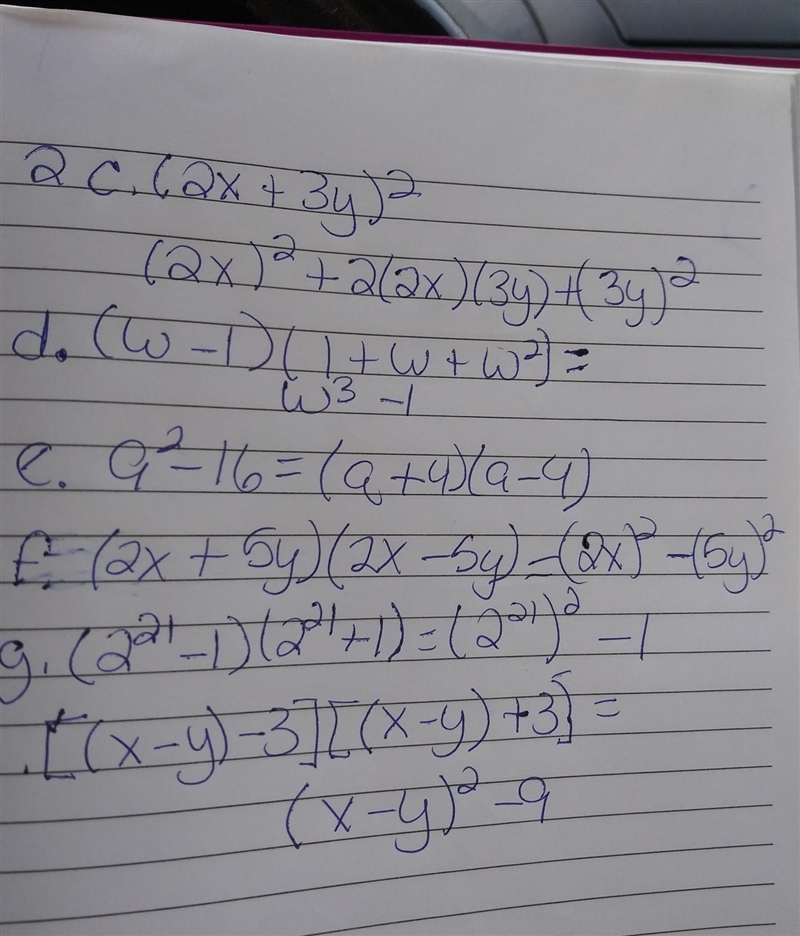 2 c. (2x + 3y)²
(2x)² + 2(2x)(3y) + (3y)²
d. (w - 1)(1 + w + w²) =
w³ - 1
e. a² - 16 = (a + 4)(a - 4)
f. (2x + 5y)(2x - 5y) = (2x)² - (5y)²
g. (2²¹ - 1)(2²¹ + 1) = (2²¹)² - 1
. [(x - y) - 3][(x - y) + 3] =
(x - y)² - 9